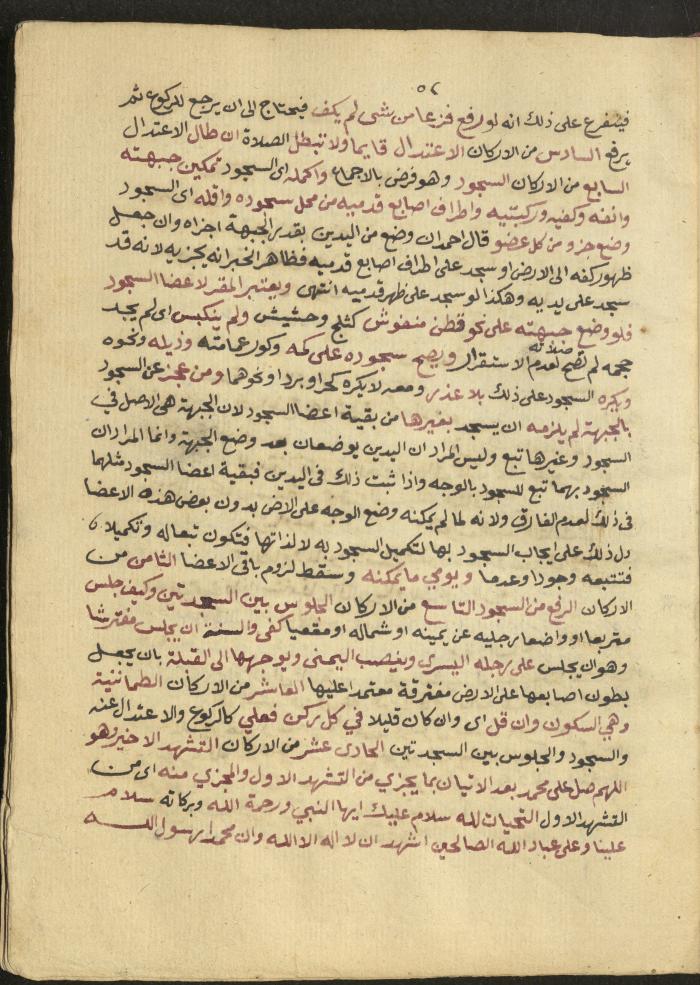 ٥٦
فيتفرع على ذلك انه لو رفع فزعا من شئ لم يكف فيحتاج الى ان يرجع للركوع ثم
يرفع السادس من الاركان الاعتدال قايما ولا تبطل الصلاة ان طال الاعتدال
السابع من الاركان السجود وهو فرض بالاجماع واكمله اى السجود تمكين جبهته
وانفه وكفيه وركبتيه واطراف اصابع قدميه من محل سجوده واقله اى السجود
وضع جزو من كل عضو قال احمد ان وضع من اليدين بقدر الجبهة اجزاه وان جعل
ظهور كفه الى الارض او سجد على اطراف اصابع قدميه فظاهر الخبر انه يجزيه لانه قد
سجد على يديه وهكذا لو سجد على ظهر قدميه انتهى ويعتبر المقر لاعضا السجود
فلو وضع جبهته على نحو قطن منفوش كثلج وحشيش ولم ينكبس اى لم يجد
حجمه لم تصح صلاته لعدم الاستقرار ويصح سجوده على كمه وكور عمامته وذيله ونحوه
ويكره السجود على ذلك بلا عذر ومعه لا يكره كحر او برد او نحوهما ومن عجز عن السجود
بالجبهة لم يلزمه ان يسجد بغيرها من بقية اعضا السجود لان الجبهة هى الاصل في
السجود وغيرها تبع وليس المراد ان اليدين يوضعان بعد وضع الجبهة وانما المراد ان
السجود بهما تبع للسجود بالوجه واذا ثبت ذلك فى اليدين فبقية اعضا السجود مثلهما
فى ذلك لعدم الفارق ولانه لما لم يمكنه وضع الوجه على الارض بدون بعض هذه الاعضا
دل ذلك على ايجاب السجود بها لتكميل السجود به لا لذاتها فتكون تبعا له وتكميلا
فتتبعه وجودا وعدما ويومي ما يمكنه وسقط لزوم باقى الاعضا الثامن من
الاركان الرفع من السجود التاسع من الاركان الجلوس بين السجدتين وكيف جلس
متربعا او واضعا رجليه عن يمينه او شماله او مقعيا كفى والسنة ان يجلس مفترشا
وهو ان يجلس على رجله اليسرى وينصب اليمنى ويوجهها الى القبلة بان يجعل
بطون اصابعها على الارض مفترقة معتمدا عليها العاشر من الاركان الطمانينة
وهي السكون وان قل اى وان كان قليلا في كل ركن فعلي كالركوع والاعتدال عنه
والسجود والجلوس بين السجدتين الحادى عشر من الاركان التشهد الاخير وهو
اللهم صل على محمد بعد الاتيان بما يجزي من التشهد الاول والمجزي منه اى من
التشهد الاول التحيات لله سلام عليك ايها النبي ورحمة الله وبركاته سلام
علينا وعلى عباد الله الصالحين اشهد ان لا اله الا الله وان محمدا رسول الله